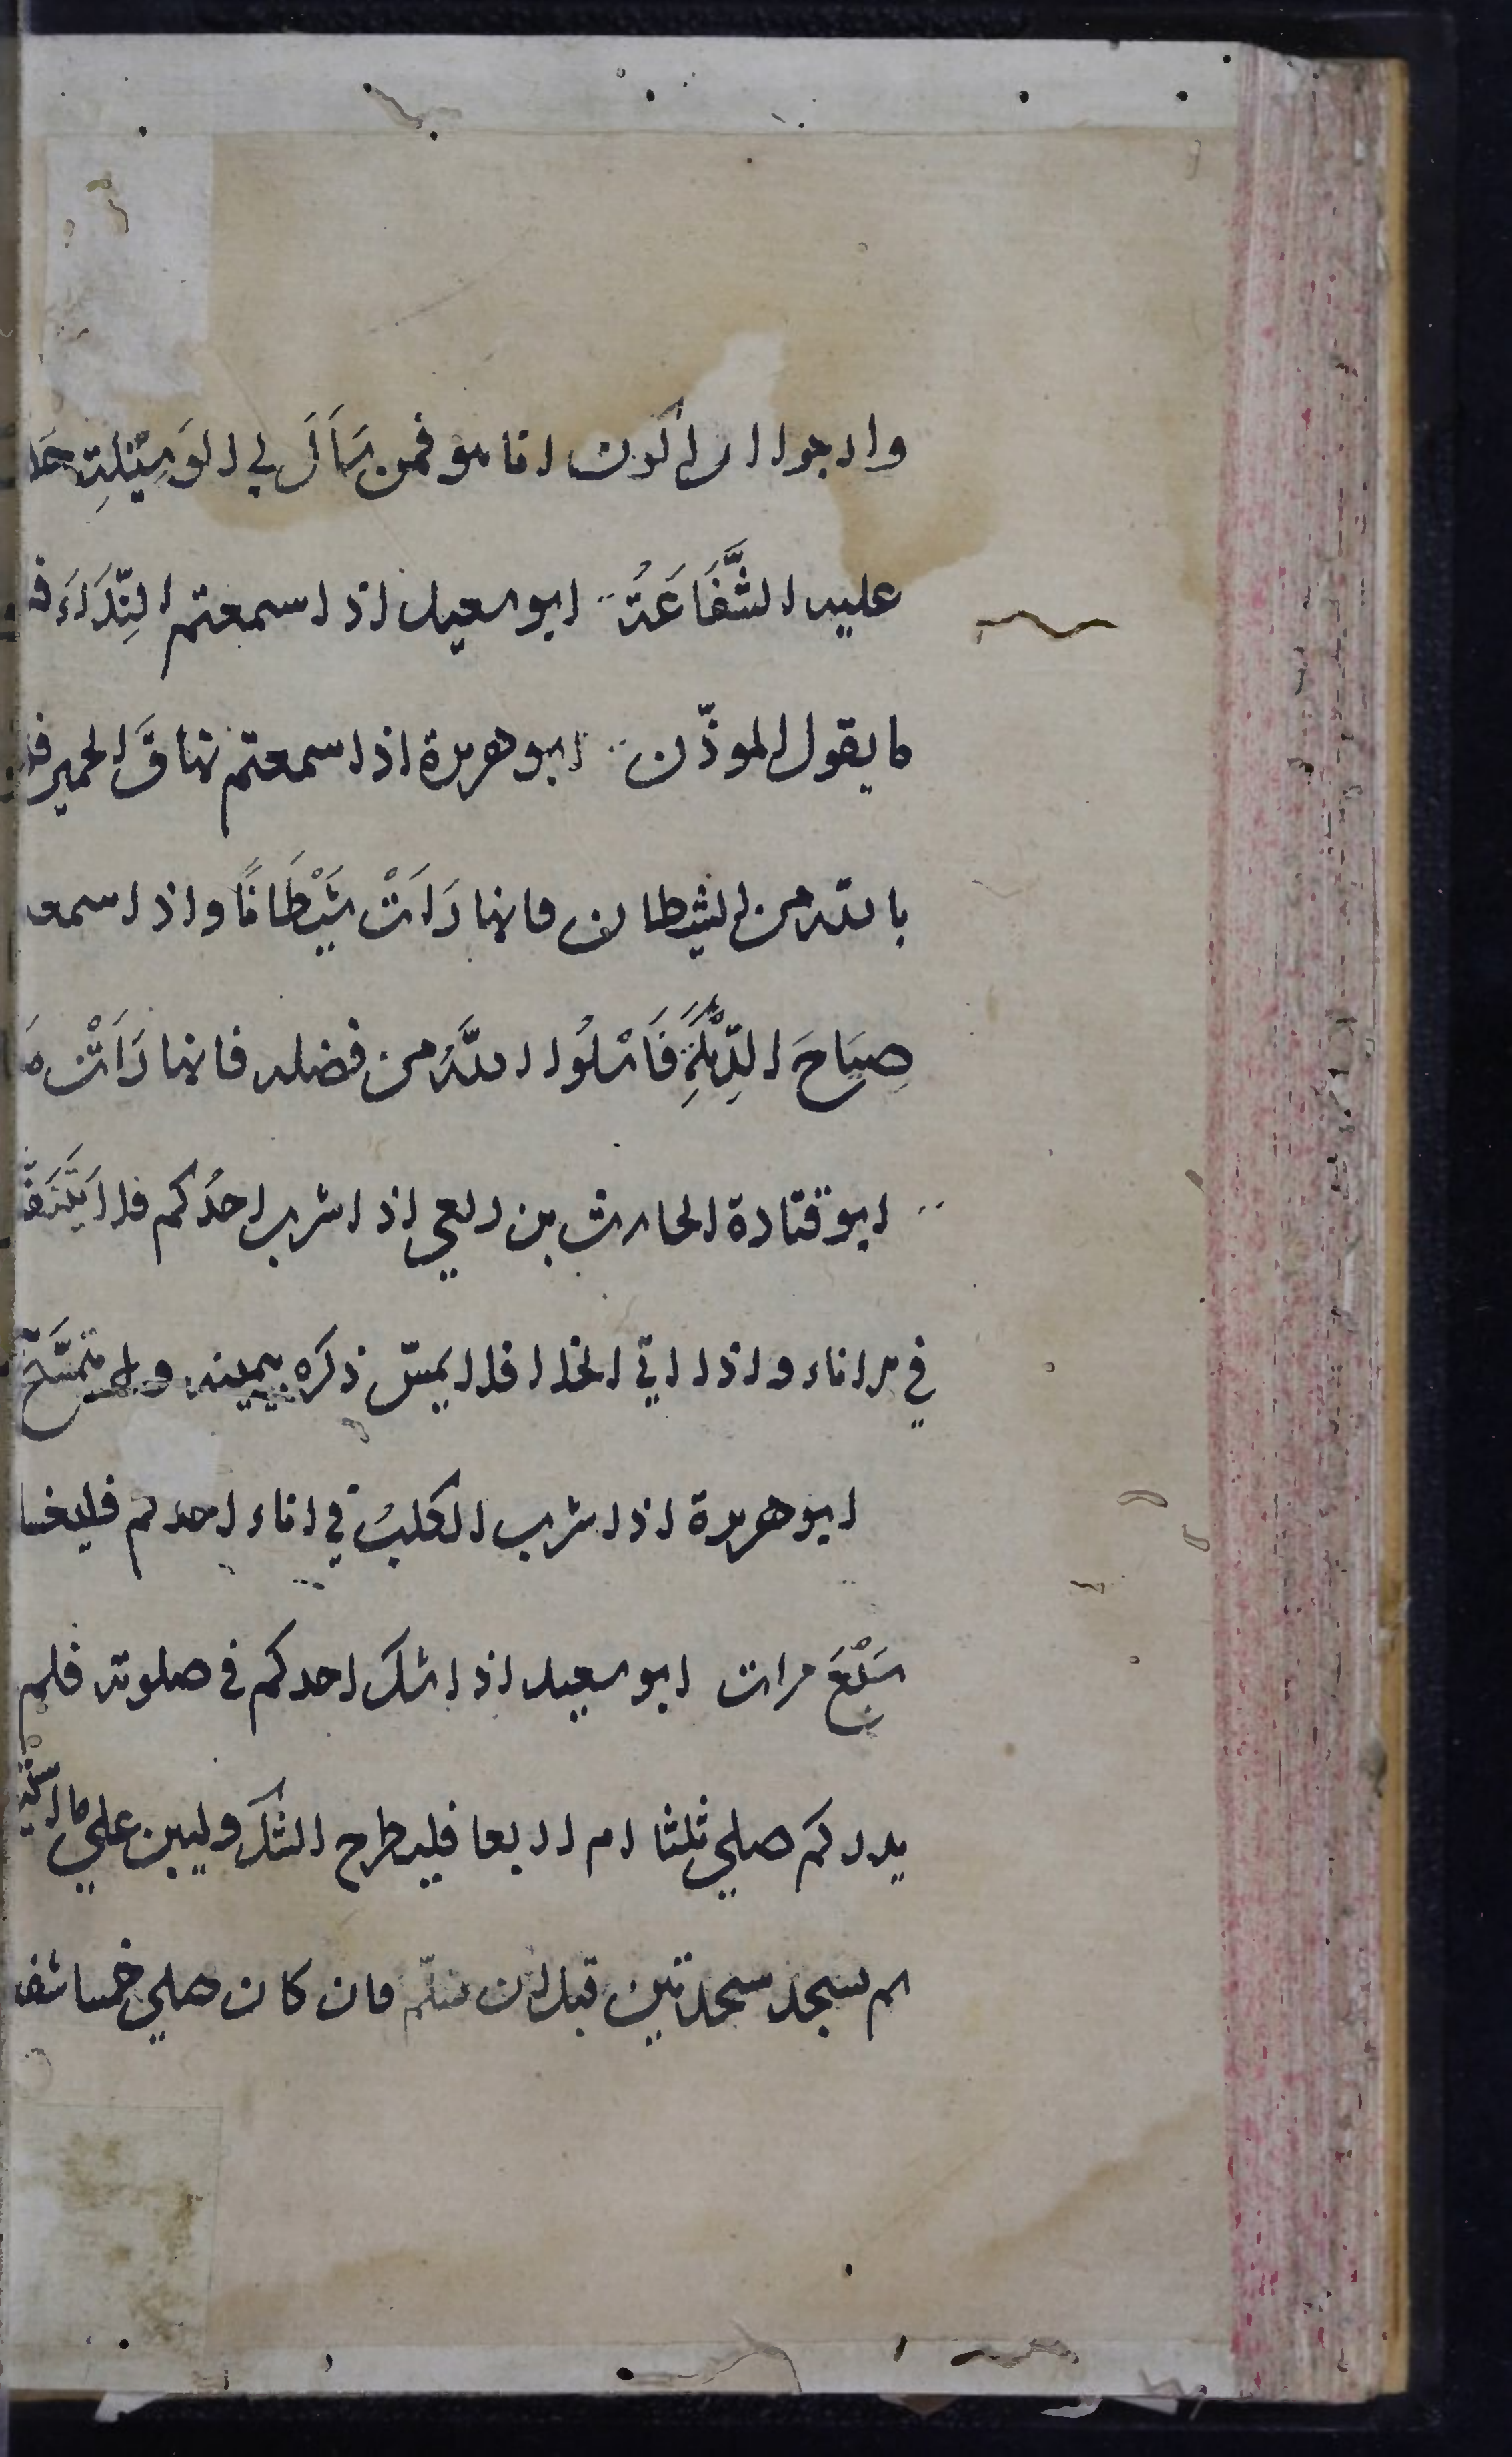 وارجوا ان اكون انا هو فمن سَأَلَ لي الوَسِيْلة حَلَّ
عليه الشَّفَاعَةُ ابو سعيد اذا سمعتم النِّدَاءَ
ما يقول الموذّن ابو هريرة اذا سمعتم نهاقَ الحمير
بالله من الشيطان فانها رَاَتْ شَيْطَانًا واذا سمعـ
صِيَاحَ الدِّيَكَةِ فَاسْلُوا اللهَ من فضله فانها رَاَتْ
ابو قتادة الحارث بن ربعي اذا شرب احدُكم فلا يَتَنَفَّـ
في الاناء واذا اتي الخلا فلا يمسّ ذكره بيمينه ولا يتمَسَّح
ابو هريرة اذا شرب الكلبُ في اناء احدكم فليغسـ
سَبْعَ مرات ابو سعيد اذا شك احدكم في صلوته فلم
يدر كم صلي ثلثا ام اربعا فليطرح الشك وليبن علي ما استيـ
ثم يسجد سجدتين قبل ان يسلّم فان كان صلي خمسا شفـ